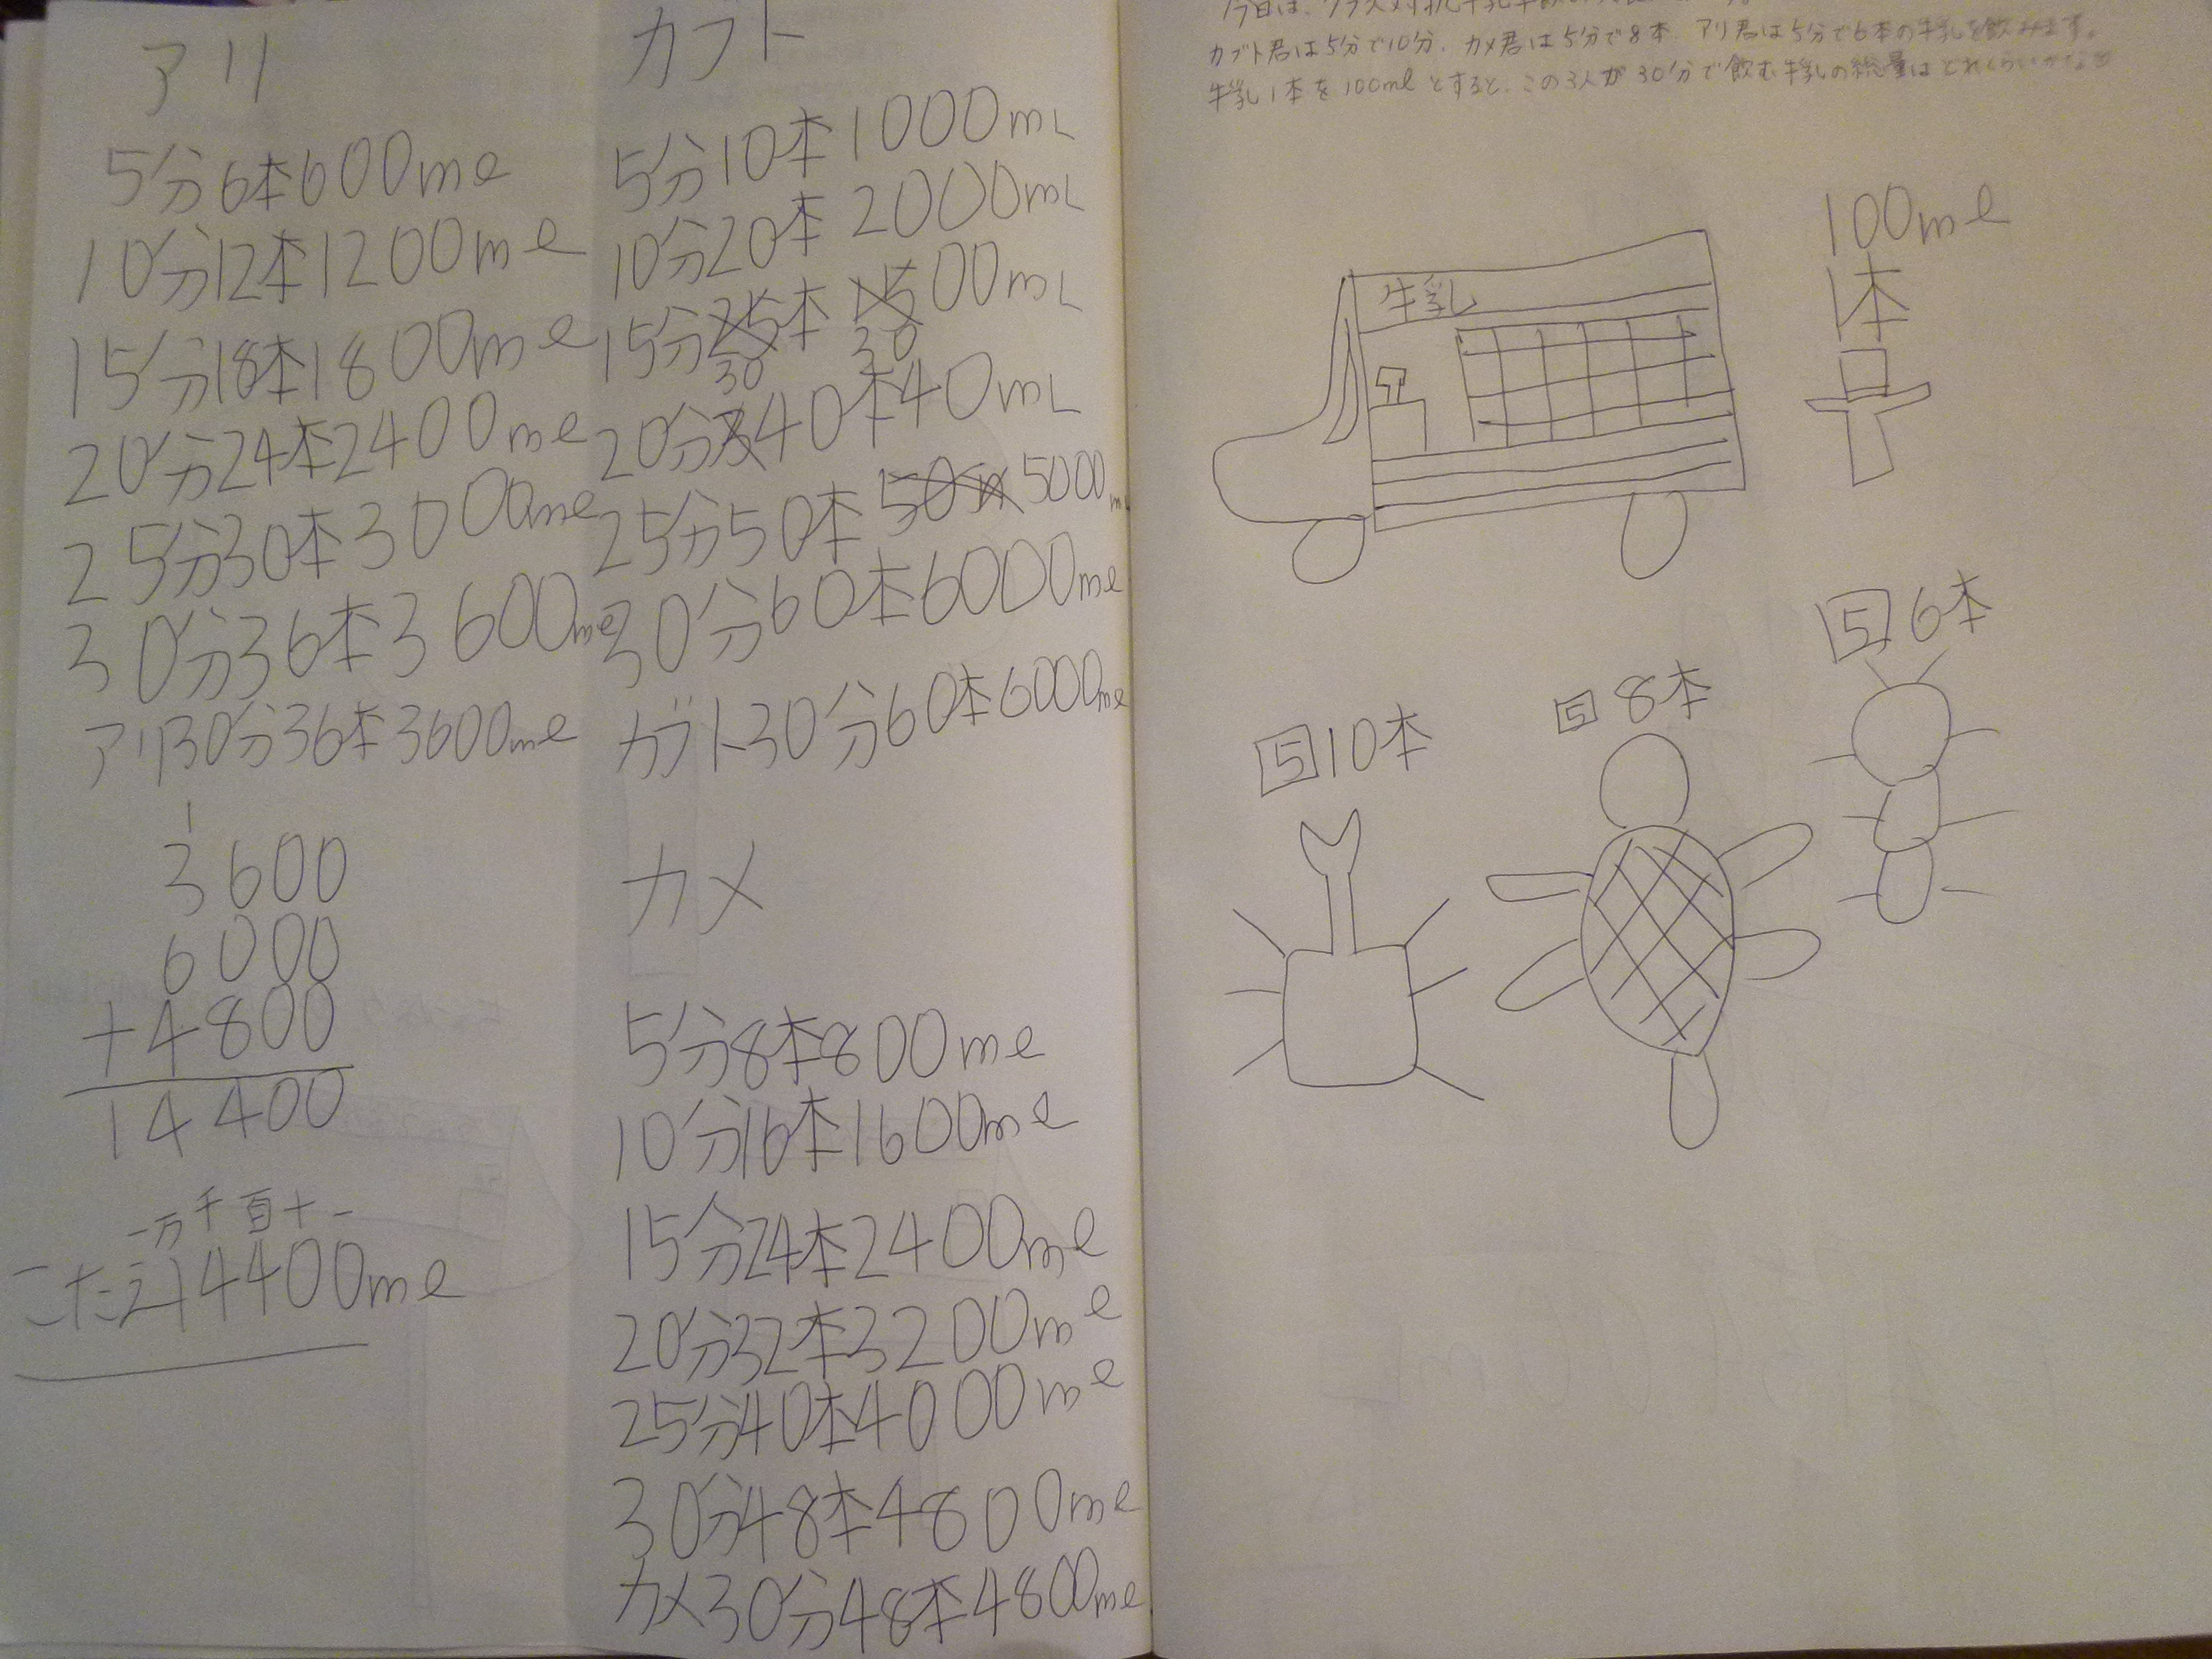 カブト君は5分で10分、カメ君は5分で8本、アリ君は5分で6本の牛乳を飲みます。
牛乳1本を100mlとすると、この3人が30分で飲む牛乳の総量はどれくらいかな
牛乳
100ml
1本
5 10本
5 8本
5 6本
カブト
5分10本1000mL
10分20本2000mL
15分30本3000mL
20分40本40mL
25分50本5000m
30分60本6000ml
カブト30分60本6000ml
カメ
5分8本800ml
10分16本1600ml
15分24本2400ml
20分32本3200ml
25分40本4000ml
30分48本4800ml
カメ30分48本4800ml
アリ
5分6本600ml
10分12本1200ml
15分18本1800ml
20分24本2400ml
25分30本3000ml
30分36本3600ml
アリ30分36本3600ml
1
3600
6000
+4800
14400
一万千百十一
こたえ14400ml